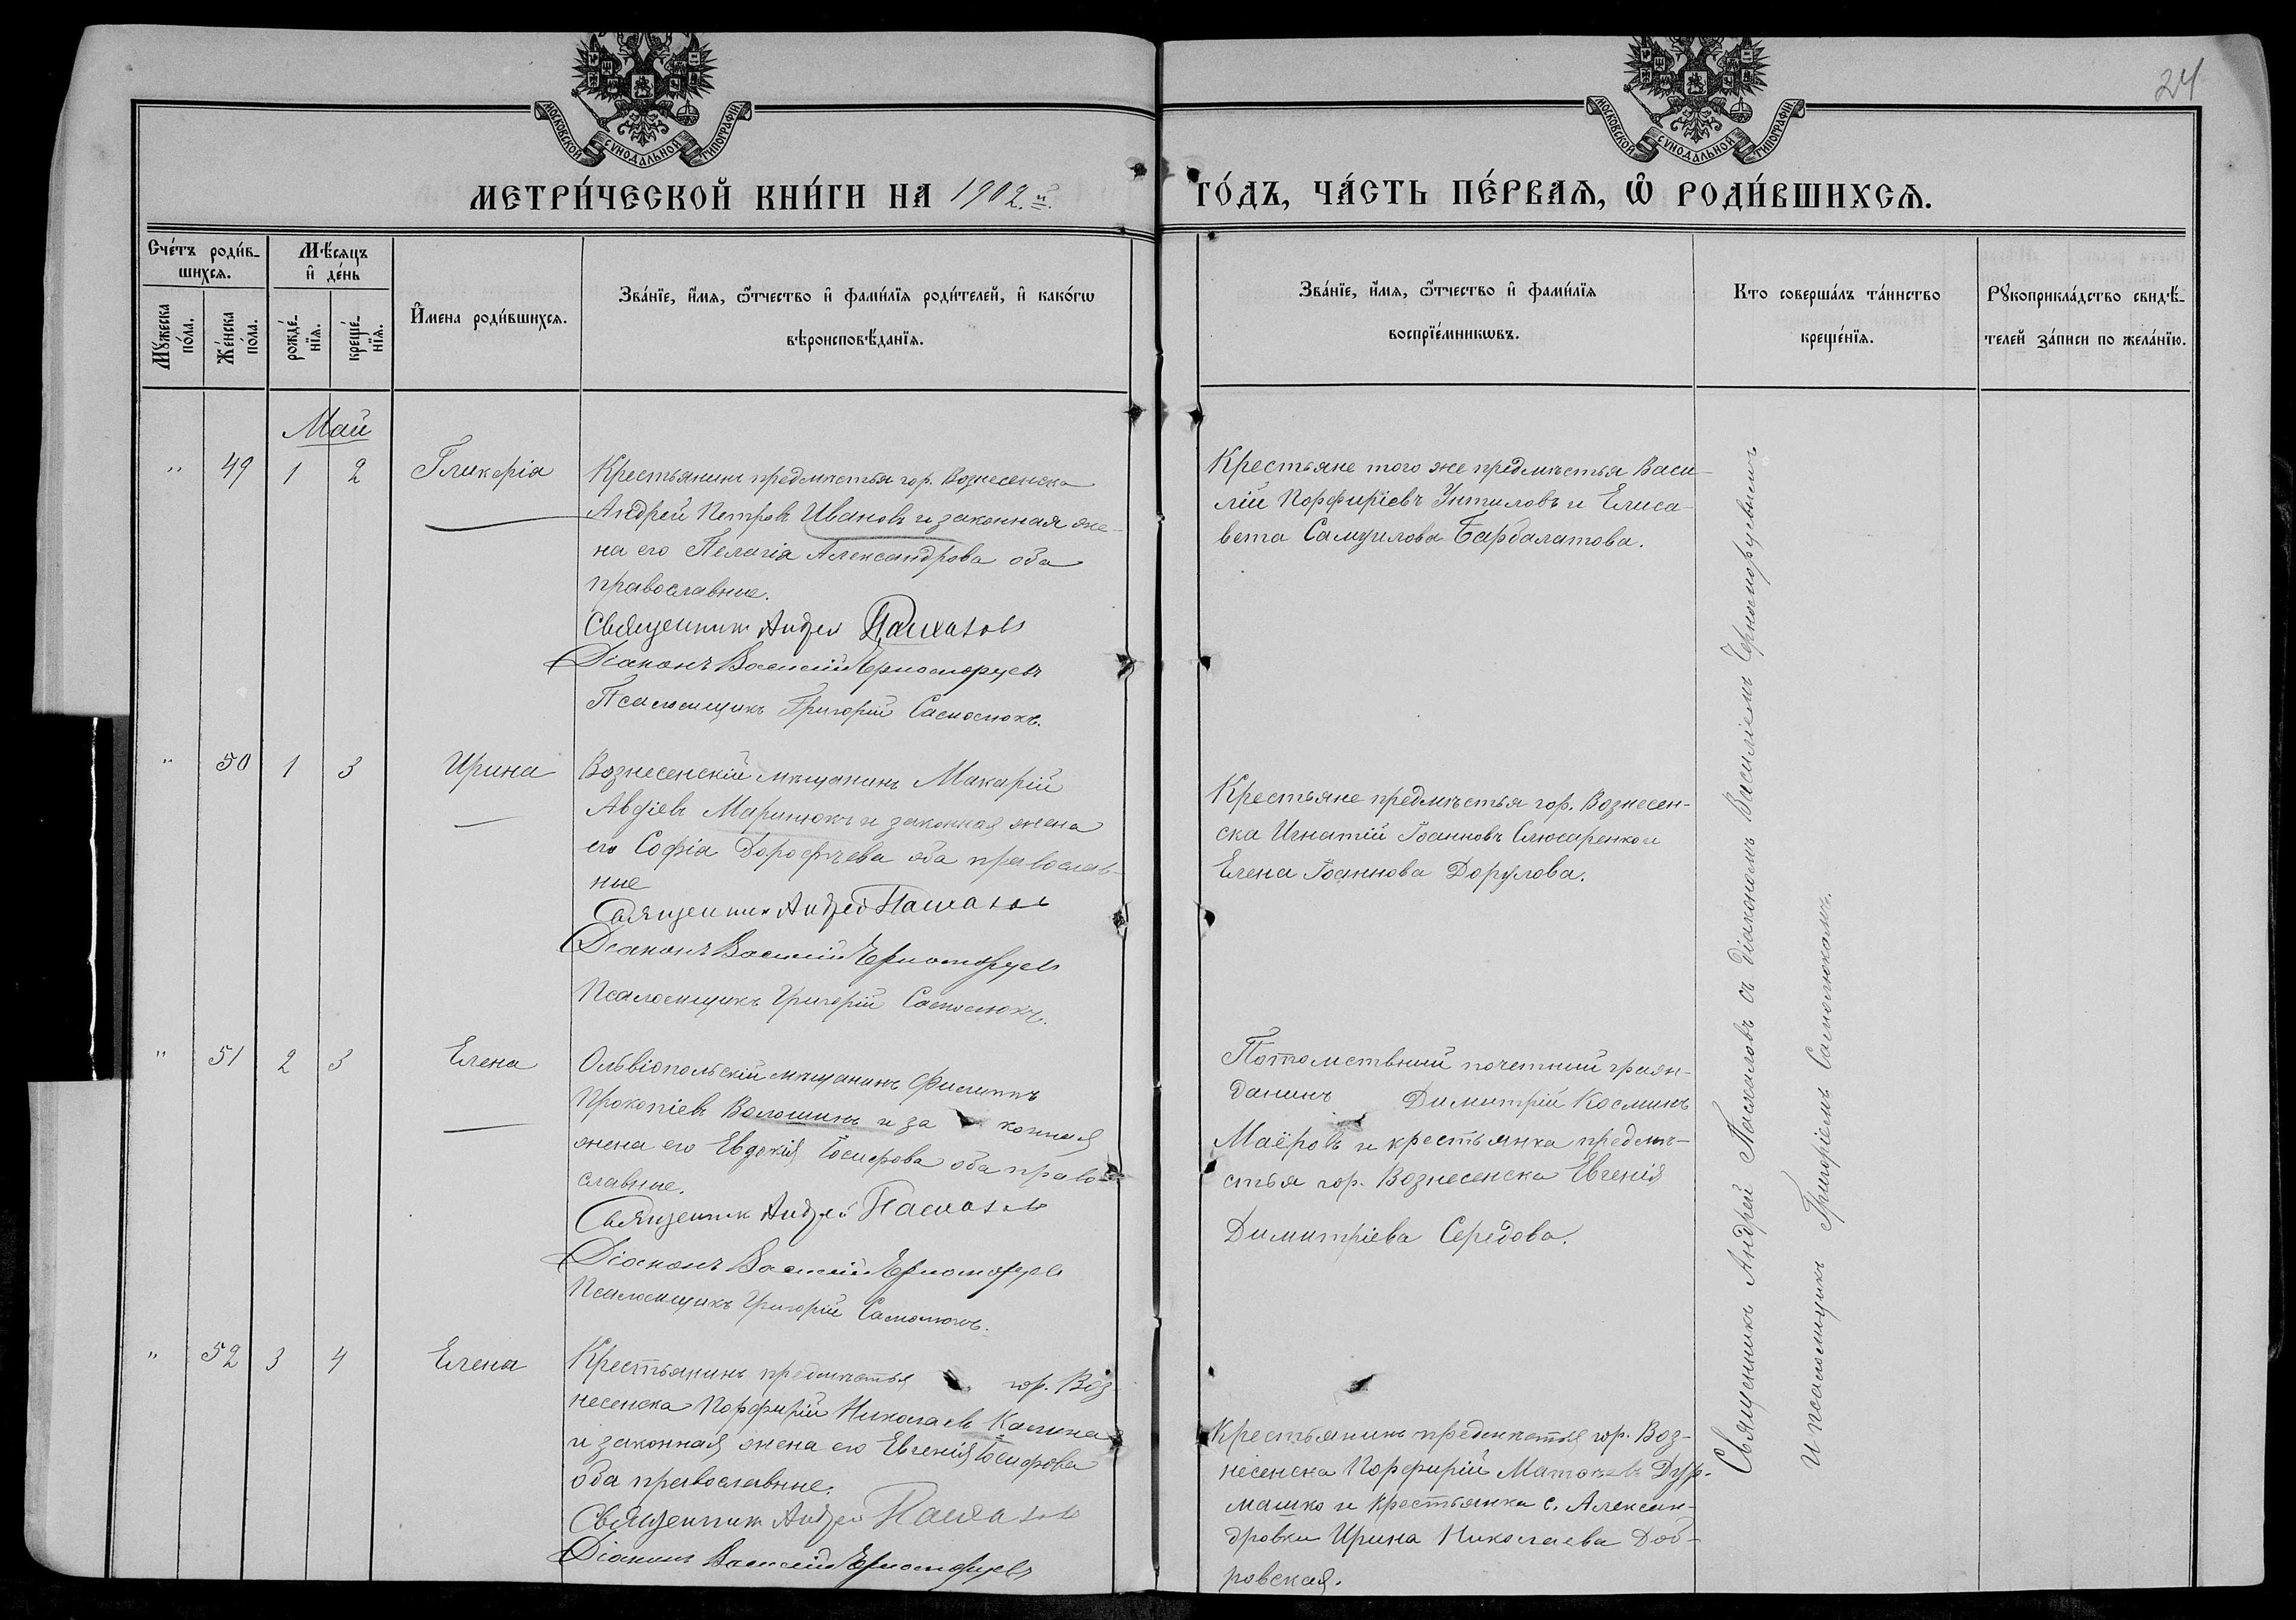 24
МОСКОВСКОЙ СѴНОДАЛЬНОЙ ТИПОГРАФІИ
МОСКОВСКОЙ СѴНОДАЛЬНОЙ ТИПОГРАФІИ
МЕТРИ́ЧЕСКОЙ КНИ́ГИ НА 1902.й
ГО́ДЪ, ЧА́СТЬ ПЕ́РВАѦ, Ѡ҆ РОДИ́ВШИХСѦ.
Сче́тъ роди́в-
шихсѧ.
Мꙋ́жеска
по́ла.
Же́нска
по́ла.
Мѣ́сѧцъ
и҆ де́нь
рожде́-
нїѧ.
креще́-
нїѧ.
И҆́мена роди́вшихсѧ.
Зва́нїе, и҆́мѧ, ѻ҆́тчество и҆ фами́лїѧ роди́телей, и҆ како́гѡ
вѣроисповѣ́данїѧ.
Зва́нїе, и҆́мѧ, ѻ҆́тчество и҆ фами́лїѧ
воспрїе́мникѡвъ.
Кто соверша́лъ та́инство
креще́нїѧ.
Рꙋкоприкла́дство свидѣ́-
телей за́писи по жела́нїю.
Май
" 49 1 2 Гликерія
Крестьянинъ предмѣстья гор. Вознесенска
Андрей Петровъ Ивановъ и законная же-
на его Пелагія Александрова оба
православные.
Священникъ Андрей
Діаконъ Василій Черноморцевъ
Псаломщикъ Григорій Самолюкъ.
Крестьяне того же предмѣстья Васи-
лій Порфиріевъ Унтиловъ и Елиса-
вета Самуилова Барбалатова.
" 50 1 3 Ирина
Вознесенскій мѣщанинъ Макарій
Авдіевъ Маринюкъ и законная жена
его Софія Дорофѣева оба православ-
ные
Священникъ Андрей
Діаконъ Василій Черноморцевъ
Псаломщикъ Григорій Самолюкъ.
Крестьяне предмѣстья гор. Вознесен-
ска Игнатій Іоанновъ Слюсаренко и
Елена Іоаннова Дорулова.
" 51 2 3 Елена
Ольвіопольскій мѣщанинъ Филиппъ
Прокопіевъ Волошинъ и за конная
жена его Евдокія Іосифова оба право-
славные.
Священникъ Андрей
Діаконъ Василій Черноморцевъ
Псаломщикъ Григорій Самолюкъ.
Потомствный почетный граж-
данинъ Димитрій Косминъ
Маёровъ и крестьянка предмѣ-
стья гор. Вознесенска Евгенія
Димитріева Середова.
" 52 3 4 Елена
Крестьянинъ предмѣстья гор. Воз-
несенска Порфирій Николаевъ Калина
и законная жена его Евгенія Іосифова
оба православные.
Священникъ Андрей
Діаконъ Василій Черноморцевъ
Крестьянинъ предмѣстья гор. Воз-
несенска Порфирій Матѳеевъ Дур-
машко и крестьянка с. Алексан-
дровки Ирина Николаева Доб-
ровская.
Священникъ Андрей съ діакономъ Василіемъ Черноморцевымъ
и псаломщикъ Григоріемъ Самолюкомъ.